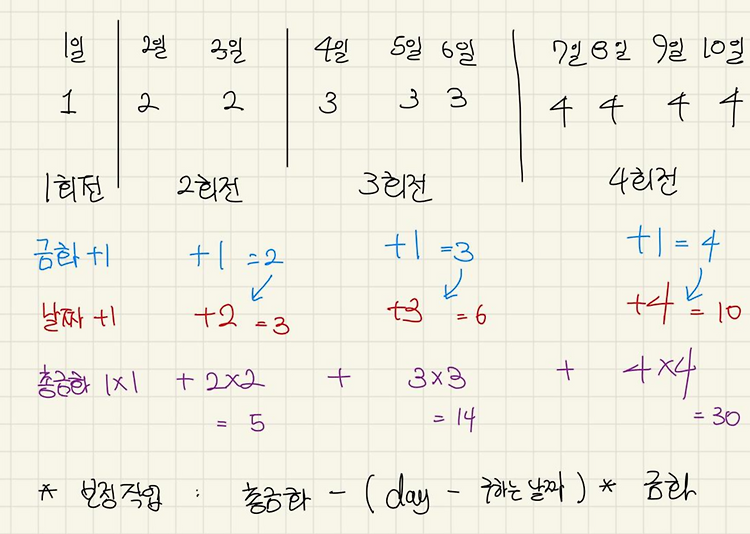 1일 2일 3일 4일 5일 6일 7일 8일 9일 10일
1 2 2 3 3 3 4 4 4 4
1회전 2회전 3회전 4회전
금화 +1 +1 =2 +1 =3 +1 = 4
날짜 +1 +2 =3 +3 = 6 +4 = 10
총금화 1×1 + 2×2 + 3×3 + 4×4
= 5 = 14 = 30
* 보정작업 : 총금화 - ( day - 구하는 날짜 ) * 금화